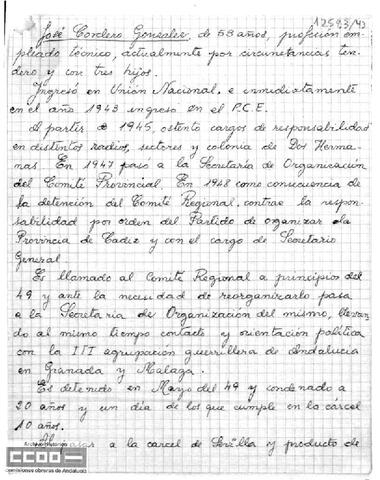 12593/43
José Cordero Gonzalez, de 58 años, profesión em-
pleado técnico, actualmente por circunstancias ten-
dero y con tres hijos.
Ingresó en Unión Nacional, e inmediatamente
en el año 1943 ingreso en el P.C.E.
A partir de 1945, ostento cargos de responsabilidad
en distintos radios, sectores y colonia de Dos Herma-
nas. En 1947 pasó a la Secretaría de Organización
del Comité Provincial. En 1948 como consecuencia de
la detención del Comité Regional, contrae la respon-
sabilidad por orden del Partido de organizar la
Provincia de Cadiz y con el cargo de Secretario
General.
Es llamado al Comité Regional a principios del
49 y ante la necesidad de reorganizarlo pasa
a la Secretaria de Organización del mismo, llevan-
do al mismo tiempo contacto y orientación política
con la III agrupación guerrillera de Andalucia
en Granada y Malaga.
Es detenido en Mayo del 49 y condenado a
20 años y un día de los que cumple en la cárcel
10 años.
Al pasar a la carcel de Sevilla y producto de
Archivo Histórico
CCOO
comisiones obreras de Andalucía